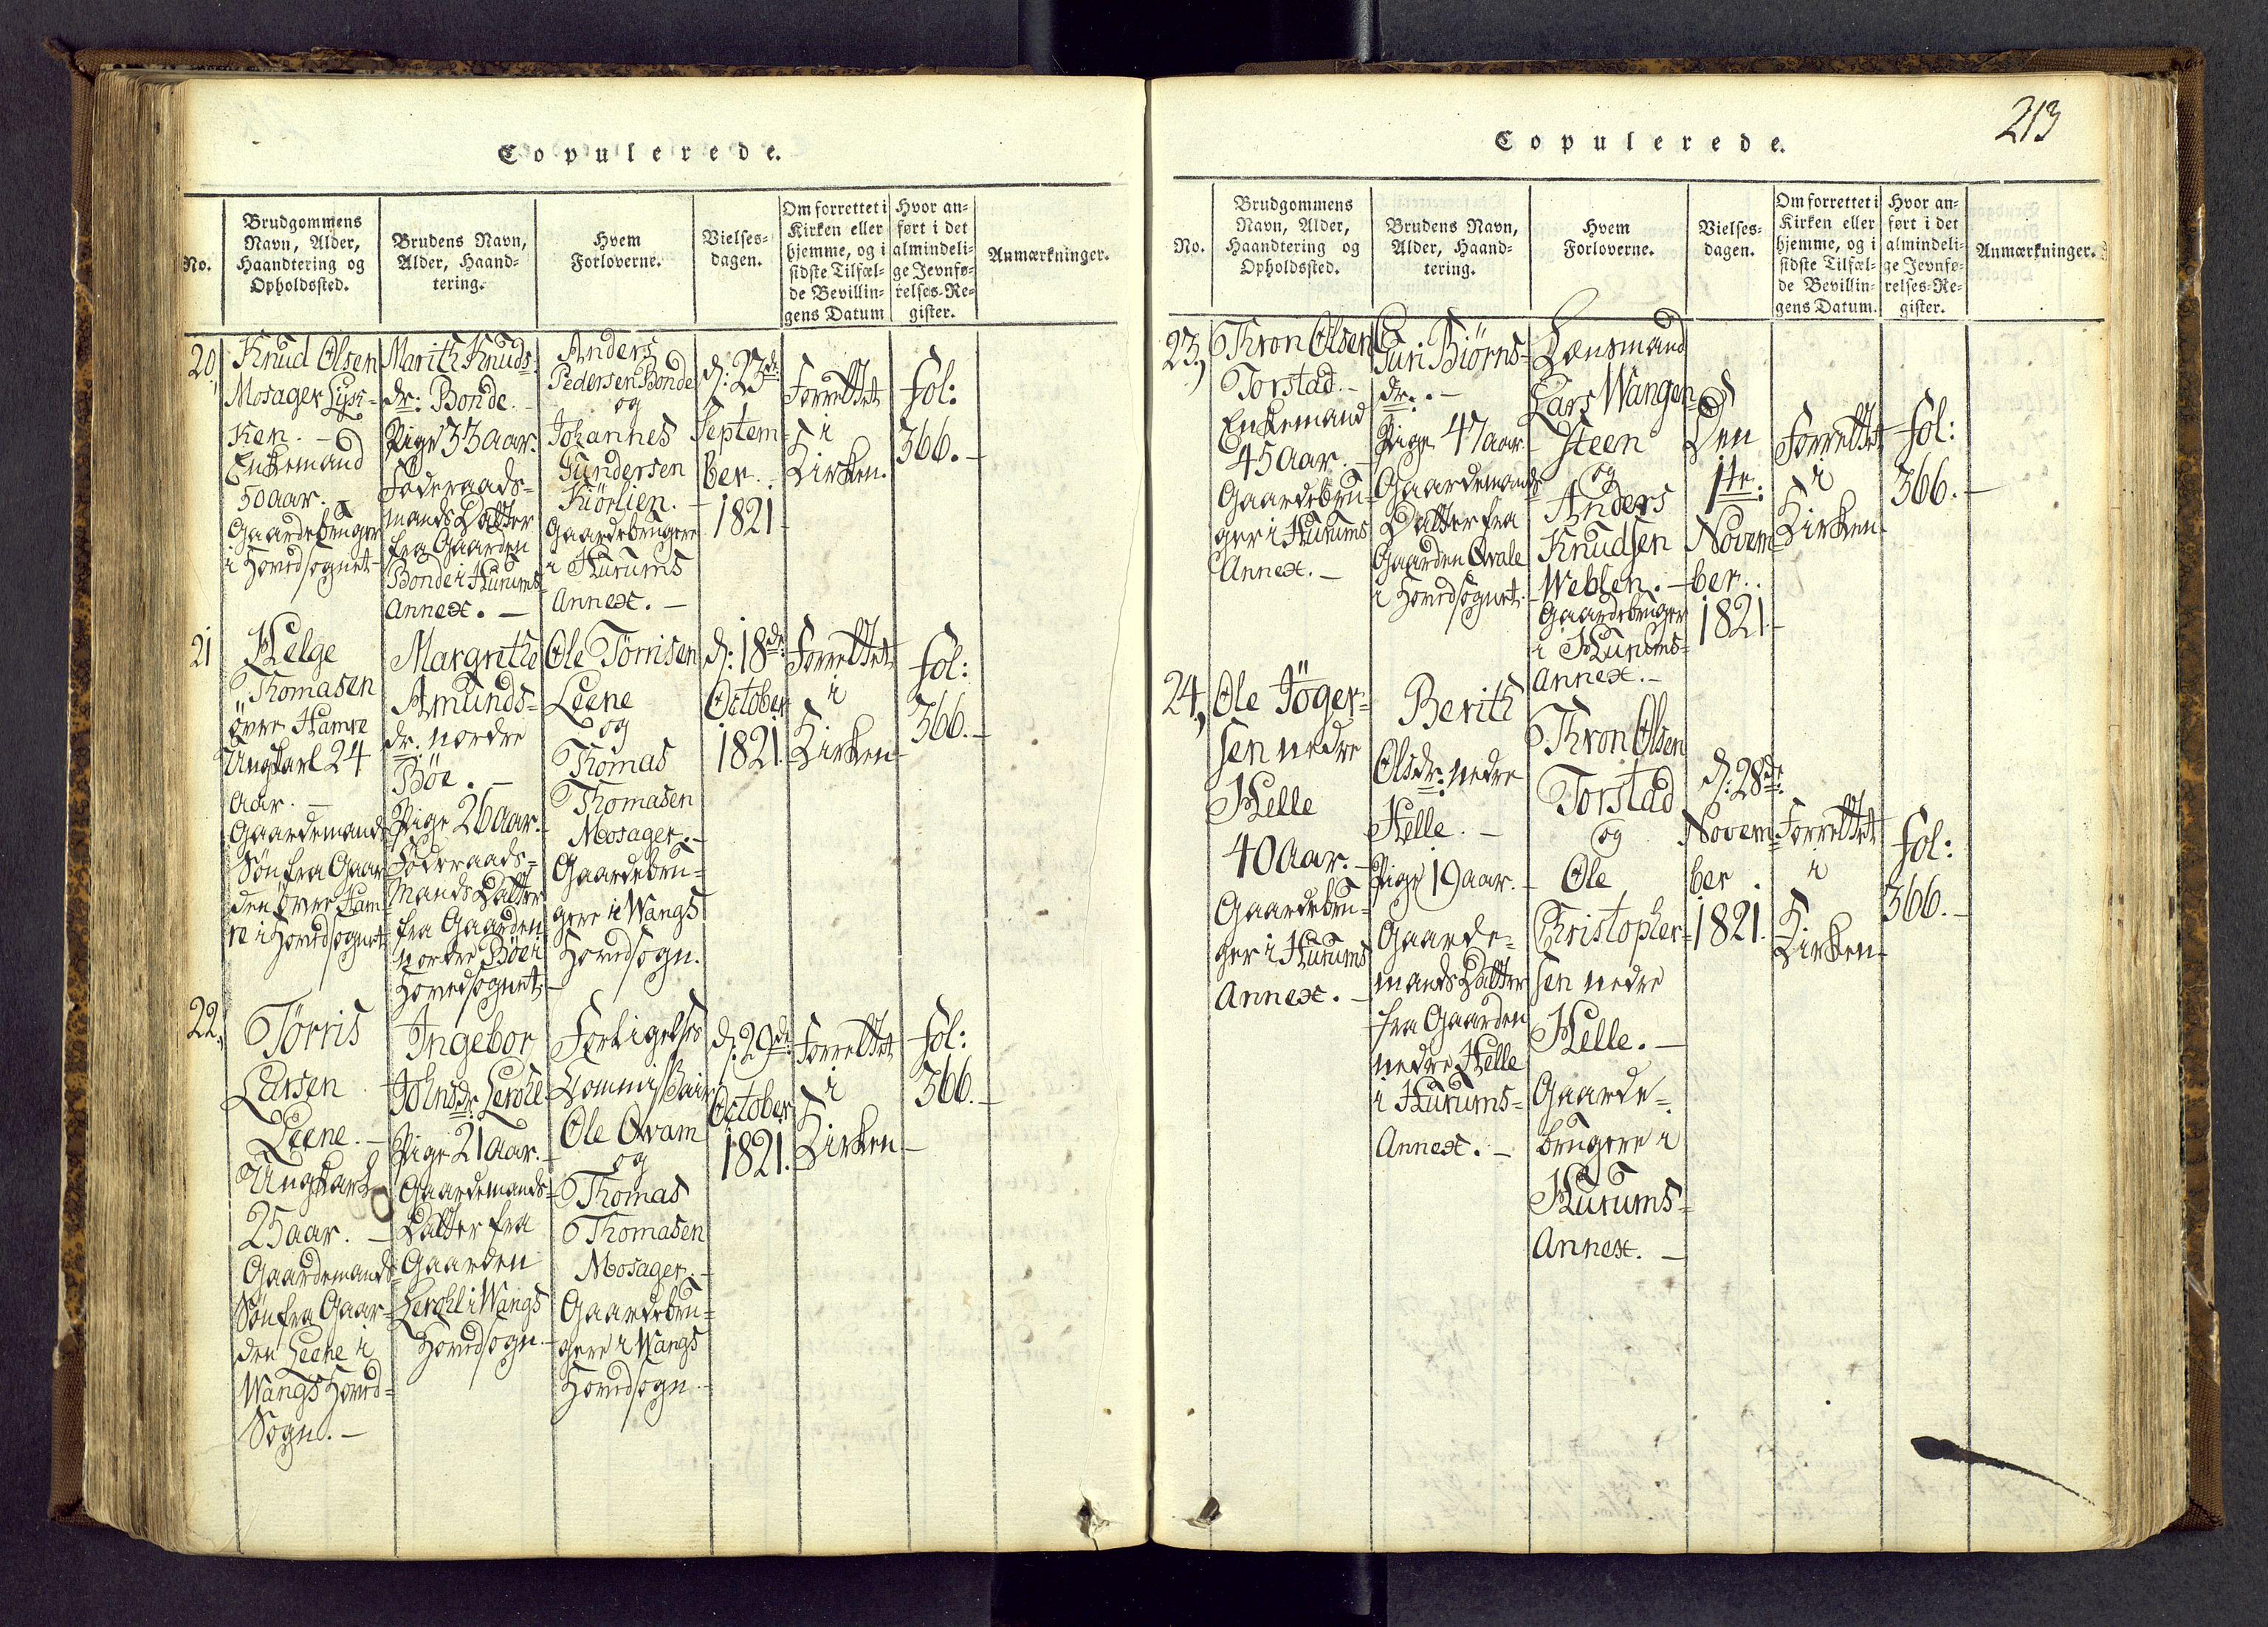 Copulerede.
No.
Brudgommens
Navn, Alder,
Haandtering og
Opholdssted.
Brudens Navn,
Alder, Haand-
tering.
Hvem
Forloverne.
Vielses-
dagen.
Om forrettet i
Kirken eller
hjemme, og i
sidste Tilfæl-
de Bevillin-
gens Datum
Hvor an-
ført i det
almindeli-
ge Jevnfø-
relses-Re-
gister.
Anmærkninger.
20,
Knud Olsen
Mosager Lysi-
Ken. -
Enkemand
50 aar.
Gaardebruger
i Hovedsognet
Marith Knuds-
dr: Bonde. -
Pige 33 aar.
Føderaads-
mands Datter
fra Gaarden
Bonde i Hurums
Annex. -
Anders
Pedersen Bonde
og
Johannes
Gundersen
Kiørlien. -
Gaardebrugere
i Hurums
Annex. -
d: 23de
Septem-
ber.
1821
Forrettet
i
Kirken.
fol:
366. -
21
Helge
Thomasen
øvre Hamre
Ungkarl 24
aar. -
Gaardemands
Søn fra Gaar-
den øvre Ham-
re i Hovedsognet
Margrethe
Amunds-
dr. nordre
Bøe. -
Pige 26 aar.
Føderaads-
Mands Datter
fra Gaarden
nordre Bøe i
Hovedsognet. -
Ole Törrisen
Leene
og
Thomas
Thomasen
Mosager. -
Gaardebru-
gere i Wangs
Hovedsogn.
d: 18de
October
1821.
Forrettet
i
Kirken
fol:
366. -
22.
Törris
Larsen
Leene. -
Ungkarl
25 aar. -
Gaardemands
Søn fra Gaar-
den Leene i
Wangs Hoved-
Sogn. -
Ingebor
Johnsdr. Lerohl
Pige 21 aar. -
Gaardemands-
Datter fra
Gaarden
Lerohl i Wangs
Hovedsogn. -
Forligelses
Commissair
Ole Qvam
og
Thomas
Thomasen
Mosager. -
Gaardebru-
gere i Wangs
Hovedsogn. -
d: 29de
October
1821.
Forrettet
i
Kirken -
fol:
366. -
213
Copulerede.
No.
Brudgommens
Navn, Alder,
Haandtering og
Opholdssted.
Brudens Navn,
Alder, Haand-
tering.
Hvem
Forloverne.
Vielses-
dagen.
Om forrettet i
Kirken eller
hjemme, og i
sidste Tilfæl-
de Bevillin-
gens Datum.
Hvor an-
ført i det
almindeli-
ge Jevnfø-
relses-Re-
gister.
Anmærkninger.
23,
Thron Olsen
Torstad. -
Enkemand
45 aar. -
Gaardebru-
ger i Hurums
Annex. -
Guri Biørns-
dr. -
Pige 47 aar.
Gaardemands
Datter fra
Gaarden Qvale
i Hovedsognet. -
Lensmand
Lars Wangen-
steen
og
Anders
Knudsen
Weblen. -
Gaardebruger
i Hurums-
Annex. -
Den
1te:
Novem
ber.
1821
Forrettet
i
Kirken
fol:
366. -
24,
Ole Jöger-
sen nedre
Helle
40 aar. -
Gaardebru-
ger i Hurums
Annex. -
Berith
Olsdr. nedre
Helle. -
Pige 19 aar. -
Gaarde-
mands Datter
fra Gaarden
nedre Helle
i Hurums-
Annex. -
Thron Olsen
Torstad
og
Ole
Christopher-
sen nedre
Helle. -
Gaarde-
brugere i
Hurums-
Annex. -
d: 28de:
Novem-
ber.
1821.
Forrettet
i
Kirken
fol:
366. -